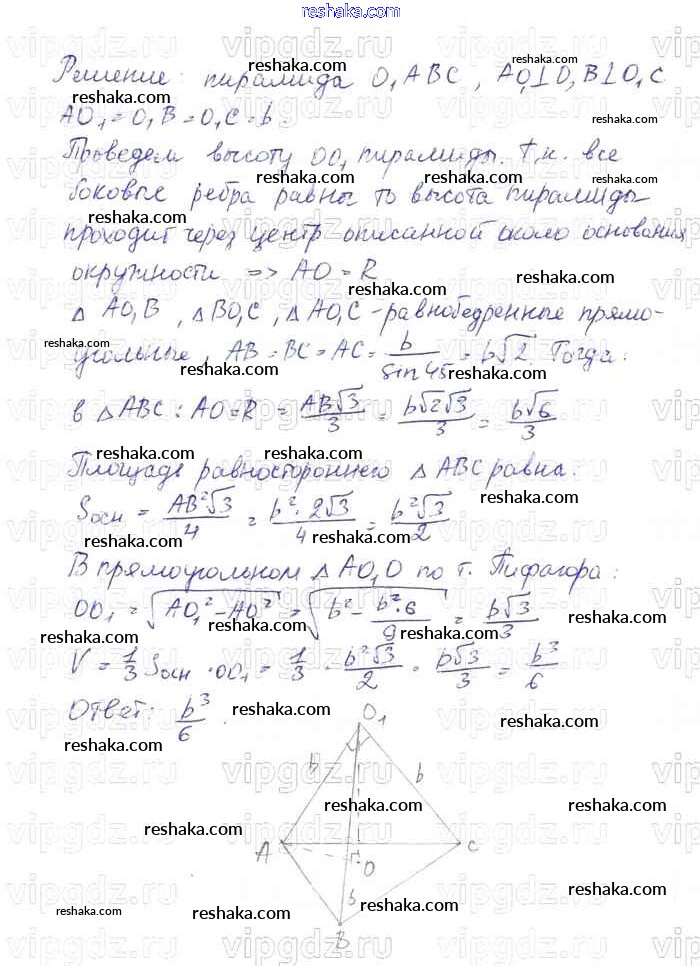 reshaka.com
Решение: пирамида O₁ABC, AO₁⊥O₁B⊥O₁C
AO₁ = O₁B = O₁C = b.
Проведем высоту OO₁ пирамиды. Т.к. все
боковые ребра равны то высота пирамиды
проходит через центр описанной около основания
окружности => AO = R
Δ AO₁B, Δ BO₁C, Δ AO₁C - равнобедренные прямо-
угольные, AB = BC = AC = b/sin 45 = b√2. Тогда:
в Δ ABC: AO = R = AB√3/3 = b√2√3/3 = b√6/3
Площадь равностороннего Δ ABC равна:
Sосн = AB²√3/4 = b²·2√3/4 = b²√3/2
В прямоугольном Δ AO₁O по т. Пифагора:
OO₁ = √(AO₁² - AO²) = √(b² - b²·6/9) = b√3/3
V = 1/3 Sосн · OO₁ = 1/3 · b²√3/2 · b√3/3 = b³/6
Ответ: b³/6.
O₁
b
b
A
O
C
b
B
vipgdz.ru
reshaka.com